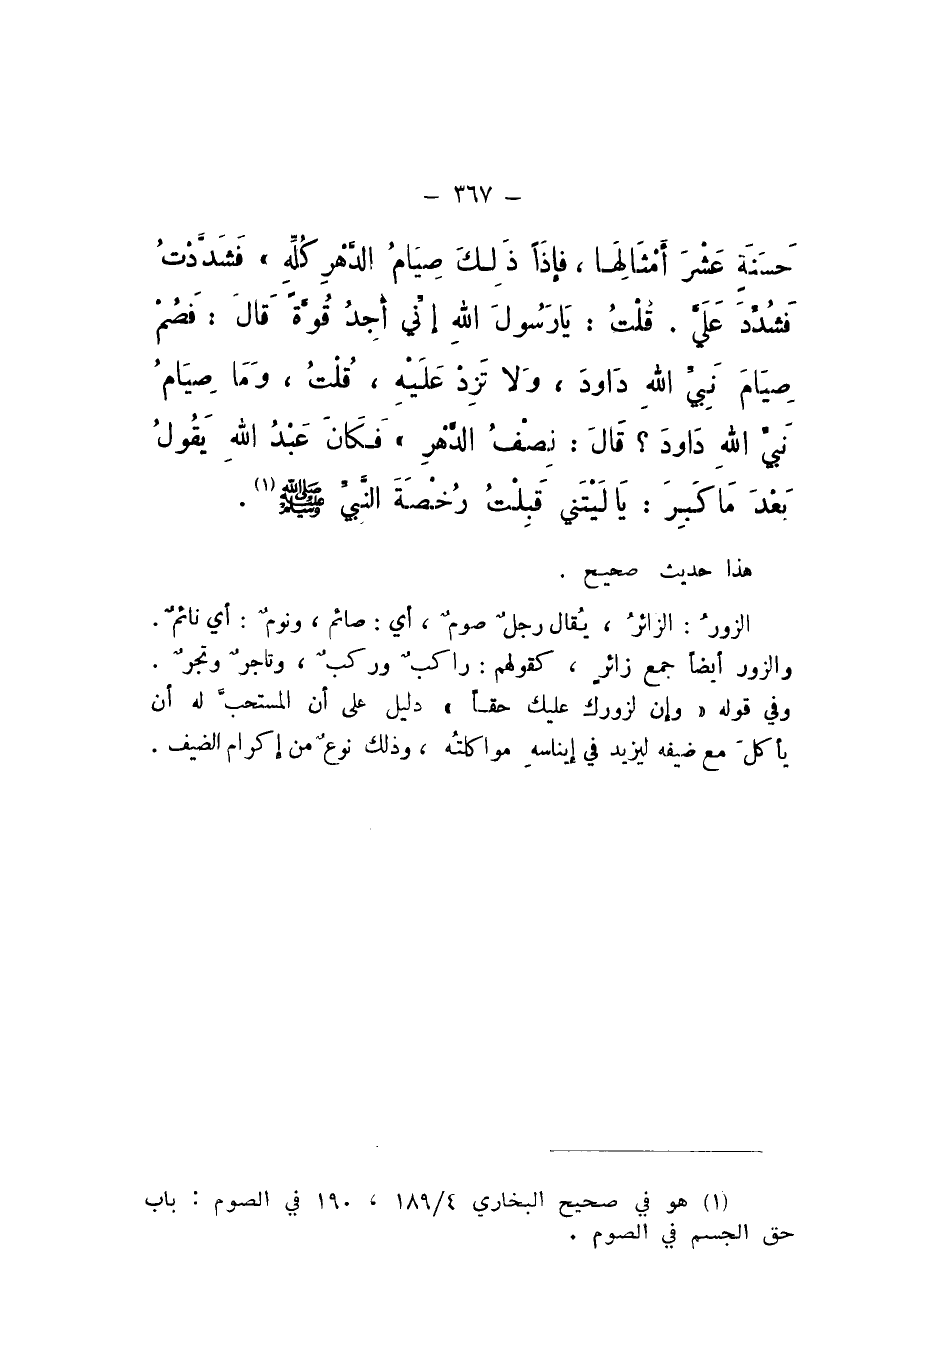 – ٣٦٧ –
حَسَنَةٍ عَشْرَ أَمْثَالِهَا ، فَإِذَاً ذَلِكَ صِيَامُ الدَّهْرِ كُلِّهِ » فَشَدَّدْتُ
فَشُدِّدَ عَلَيَّ . قُلْتُ : يَارَسُولَ اللهِ إِنِّي أَجِدُ قُوَّةً قَالَ : فَصُمْ
صِيَامَ نَبِيِّ اللهِ دَاودَ ، وَلا تَزِدْ عَلَيْهِ ، قُلْتُ ، وَمَا صِيَامُ
نَبِيِّ اللهِ دَاودَ ؟ قَالَ : نِصْفُ الدَّهْرِ » فَكَانَ عَبْدُ اللهِ يَقُولُ
بَعْدَ مَا كَبِرَ : يَا لَيْتَنِي قَبِلْتُ رُخْصَةَ النَّبِيِّ ﷺ (١) .
هذا حديث صحيح .
الزورُ : الزائرُ ، يُقال رجلٌ صومٌ ، أي : صائم ، ونومٌ : أي نائمٌ .
والزور أيضاً جمع زائرٍ ، كقولهم : راكبٌ وركبٌ ، وتاجرٌ وتجرٌ .
وفي قوله « وإن لزورك عليك حقاً » دليل على أن المستحبَّ له أن
يأكلَ مع ضيفه ليزيد في إيناسه مواكلتُه ، وذلك نوعٌ من إكرام الضيف .
(١) هو في صحيح البخاري ١٨٩/٤ ، ١٩٠ في الصوم : باب
حق الجسم في الصوم .